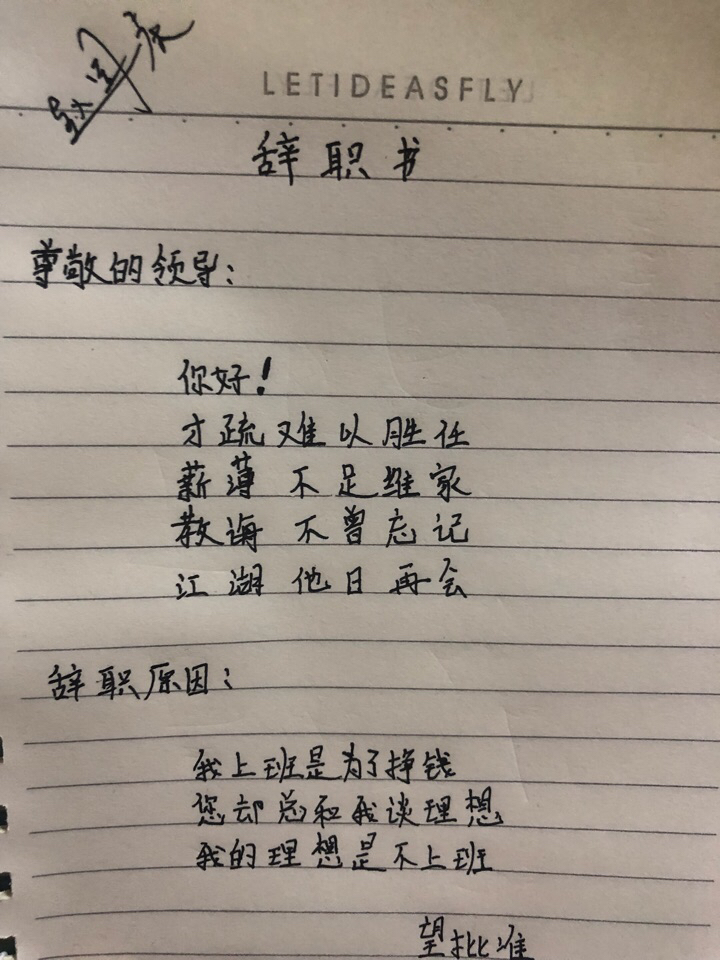 LETIDEASFLY
辞职书
尊敬的领导:
你好!
才疏难以胜任
薪薄不足维家
教诲不曾忘记
江湖他日再会
辞职原因:
我上班是为了挣钱
您却总和我谈理想
我的理想是不上班
望批准